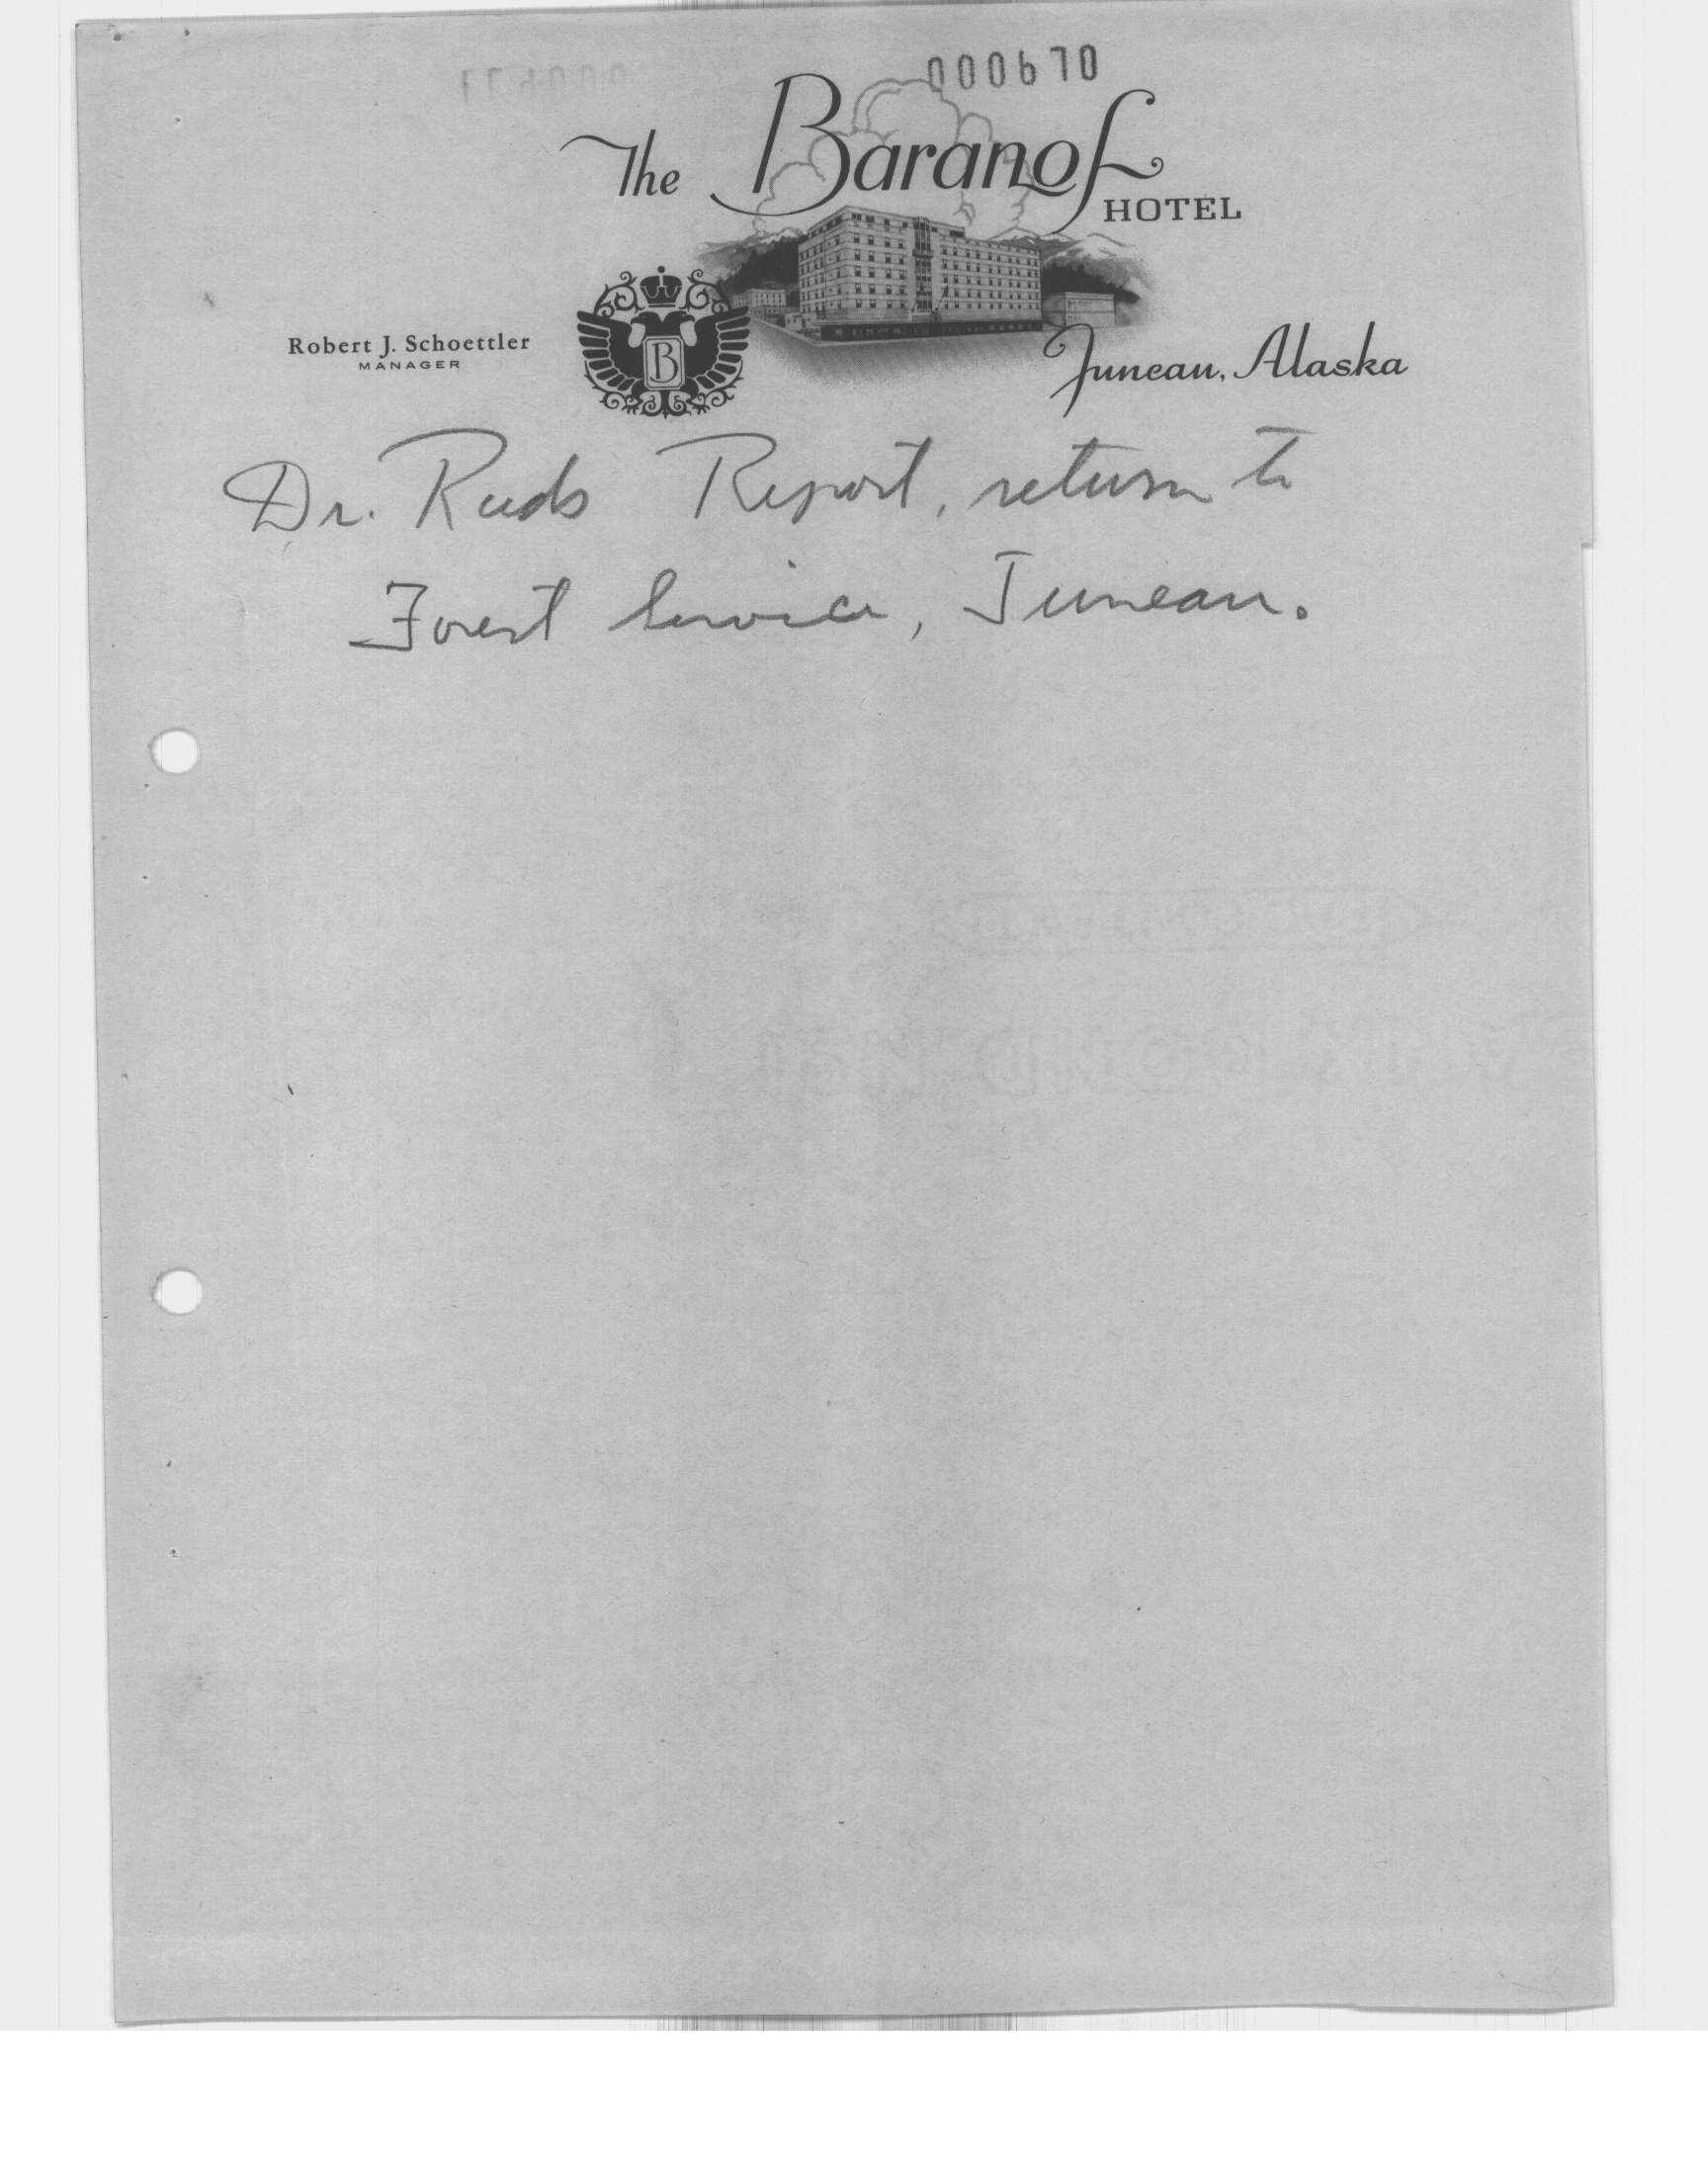 000670
The Baranof
HOTEL
Robert J. Schoettler
MANAGER
B
Juneau, Alaska
Dr. Reeds Report, return to
Forest Service, Juneau.